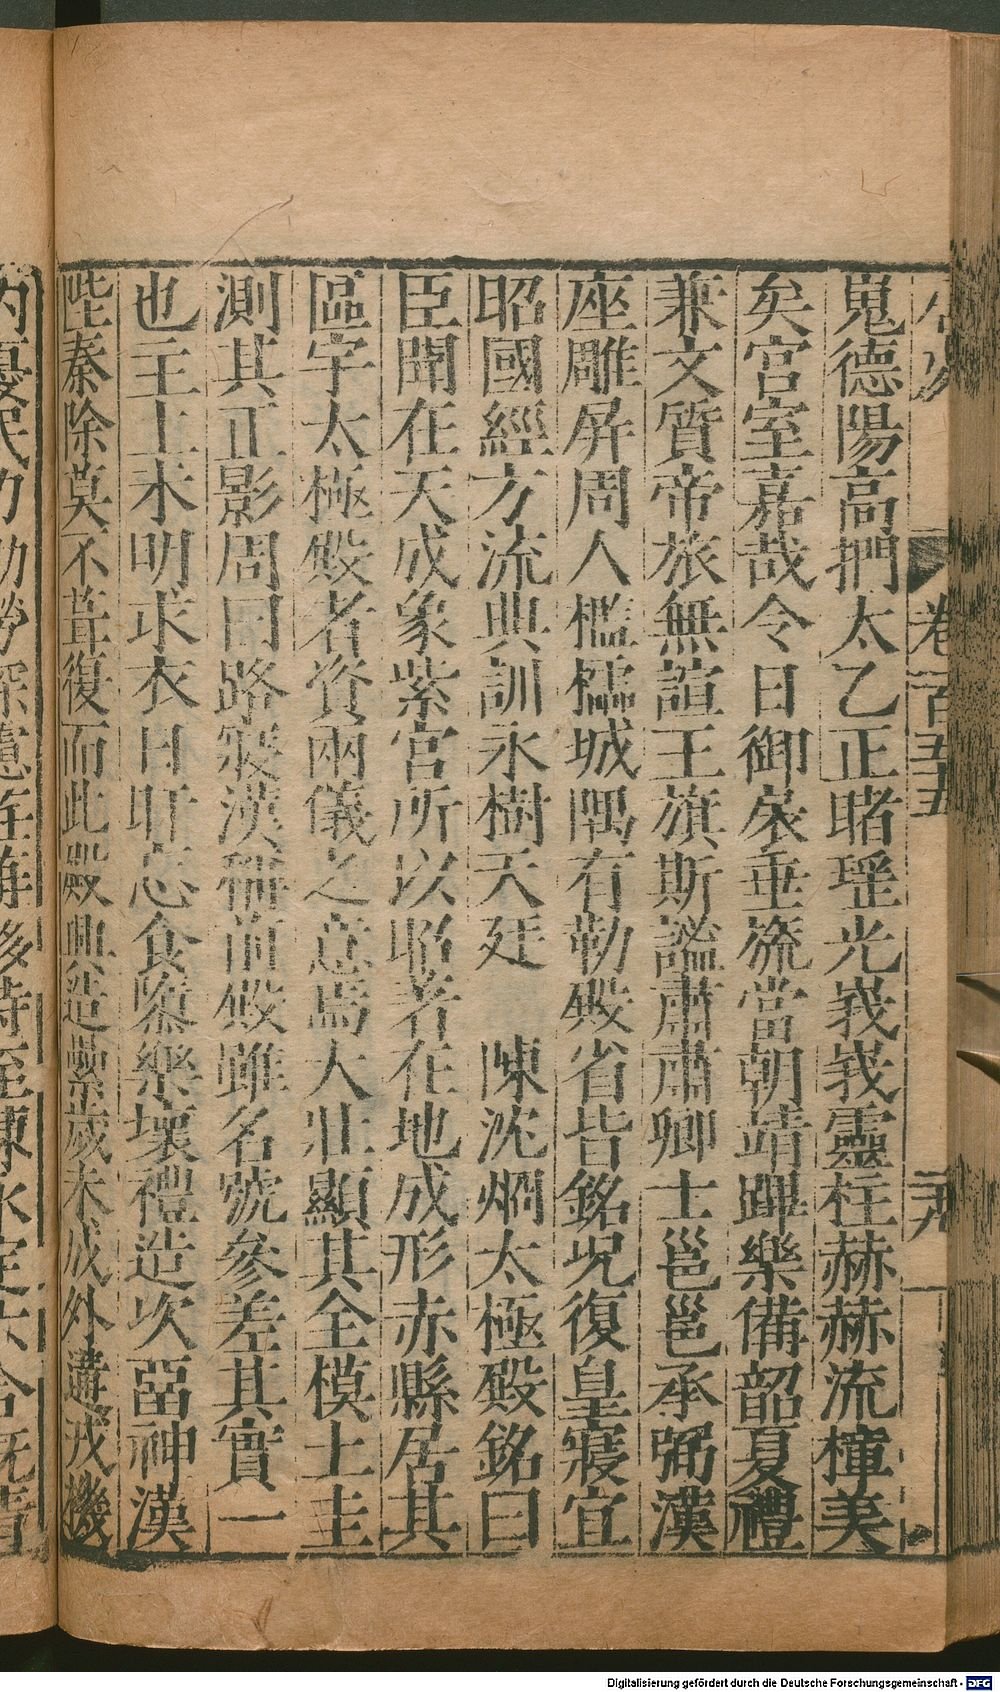 嵬德陽高捫太乙正睹瑤光峩峩靈柱赫赫流橦美
矣宮室嘉哉令日御扆垂旒當朝靖蹕樂備韶夏禮
兼文質帝旅無諠王旗斯謐肅肅卿士邕邕承弼漢
座雕屏周人檻櫺城隅有勒殿省皆銘況復皇寢宜
昭國經方流典訓永樹天廷　陳沈烱太極殿銘曰
臣聞在天成象紫宮所以昭著在地成形赤縣居其
區宇太極殿者資兩儀之意焉大壯顯其全模土圭
測其正影周曰路寢漢稱前殿雖名號參差其實一
也主上未明求衣日旰忘食隳樂壞禮造次留神漢
陛秦除莫不葺復而此殿興造累歲未成外遘戎機
卷百五五
Digitalisierung gefördert durch die Deutsche Forschungsgemeinschaft - DFG